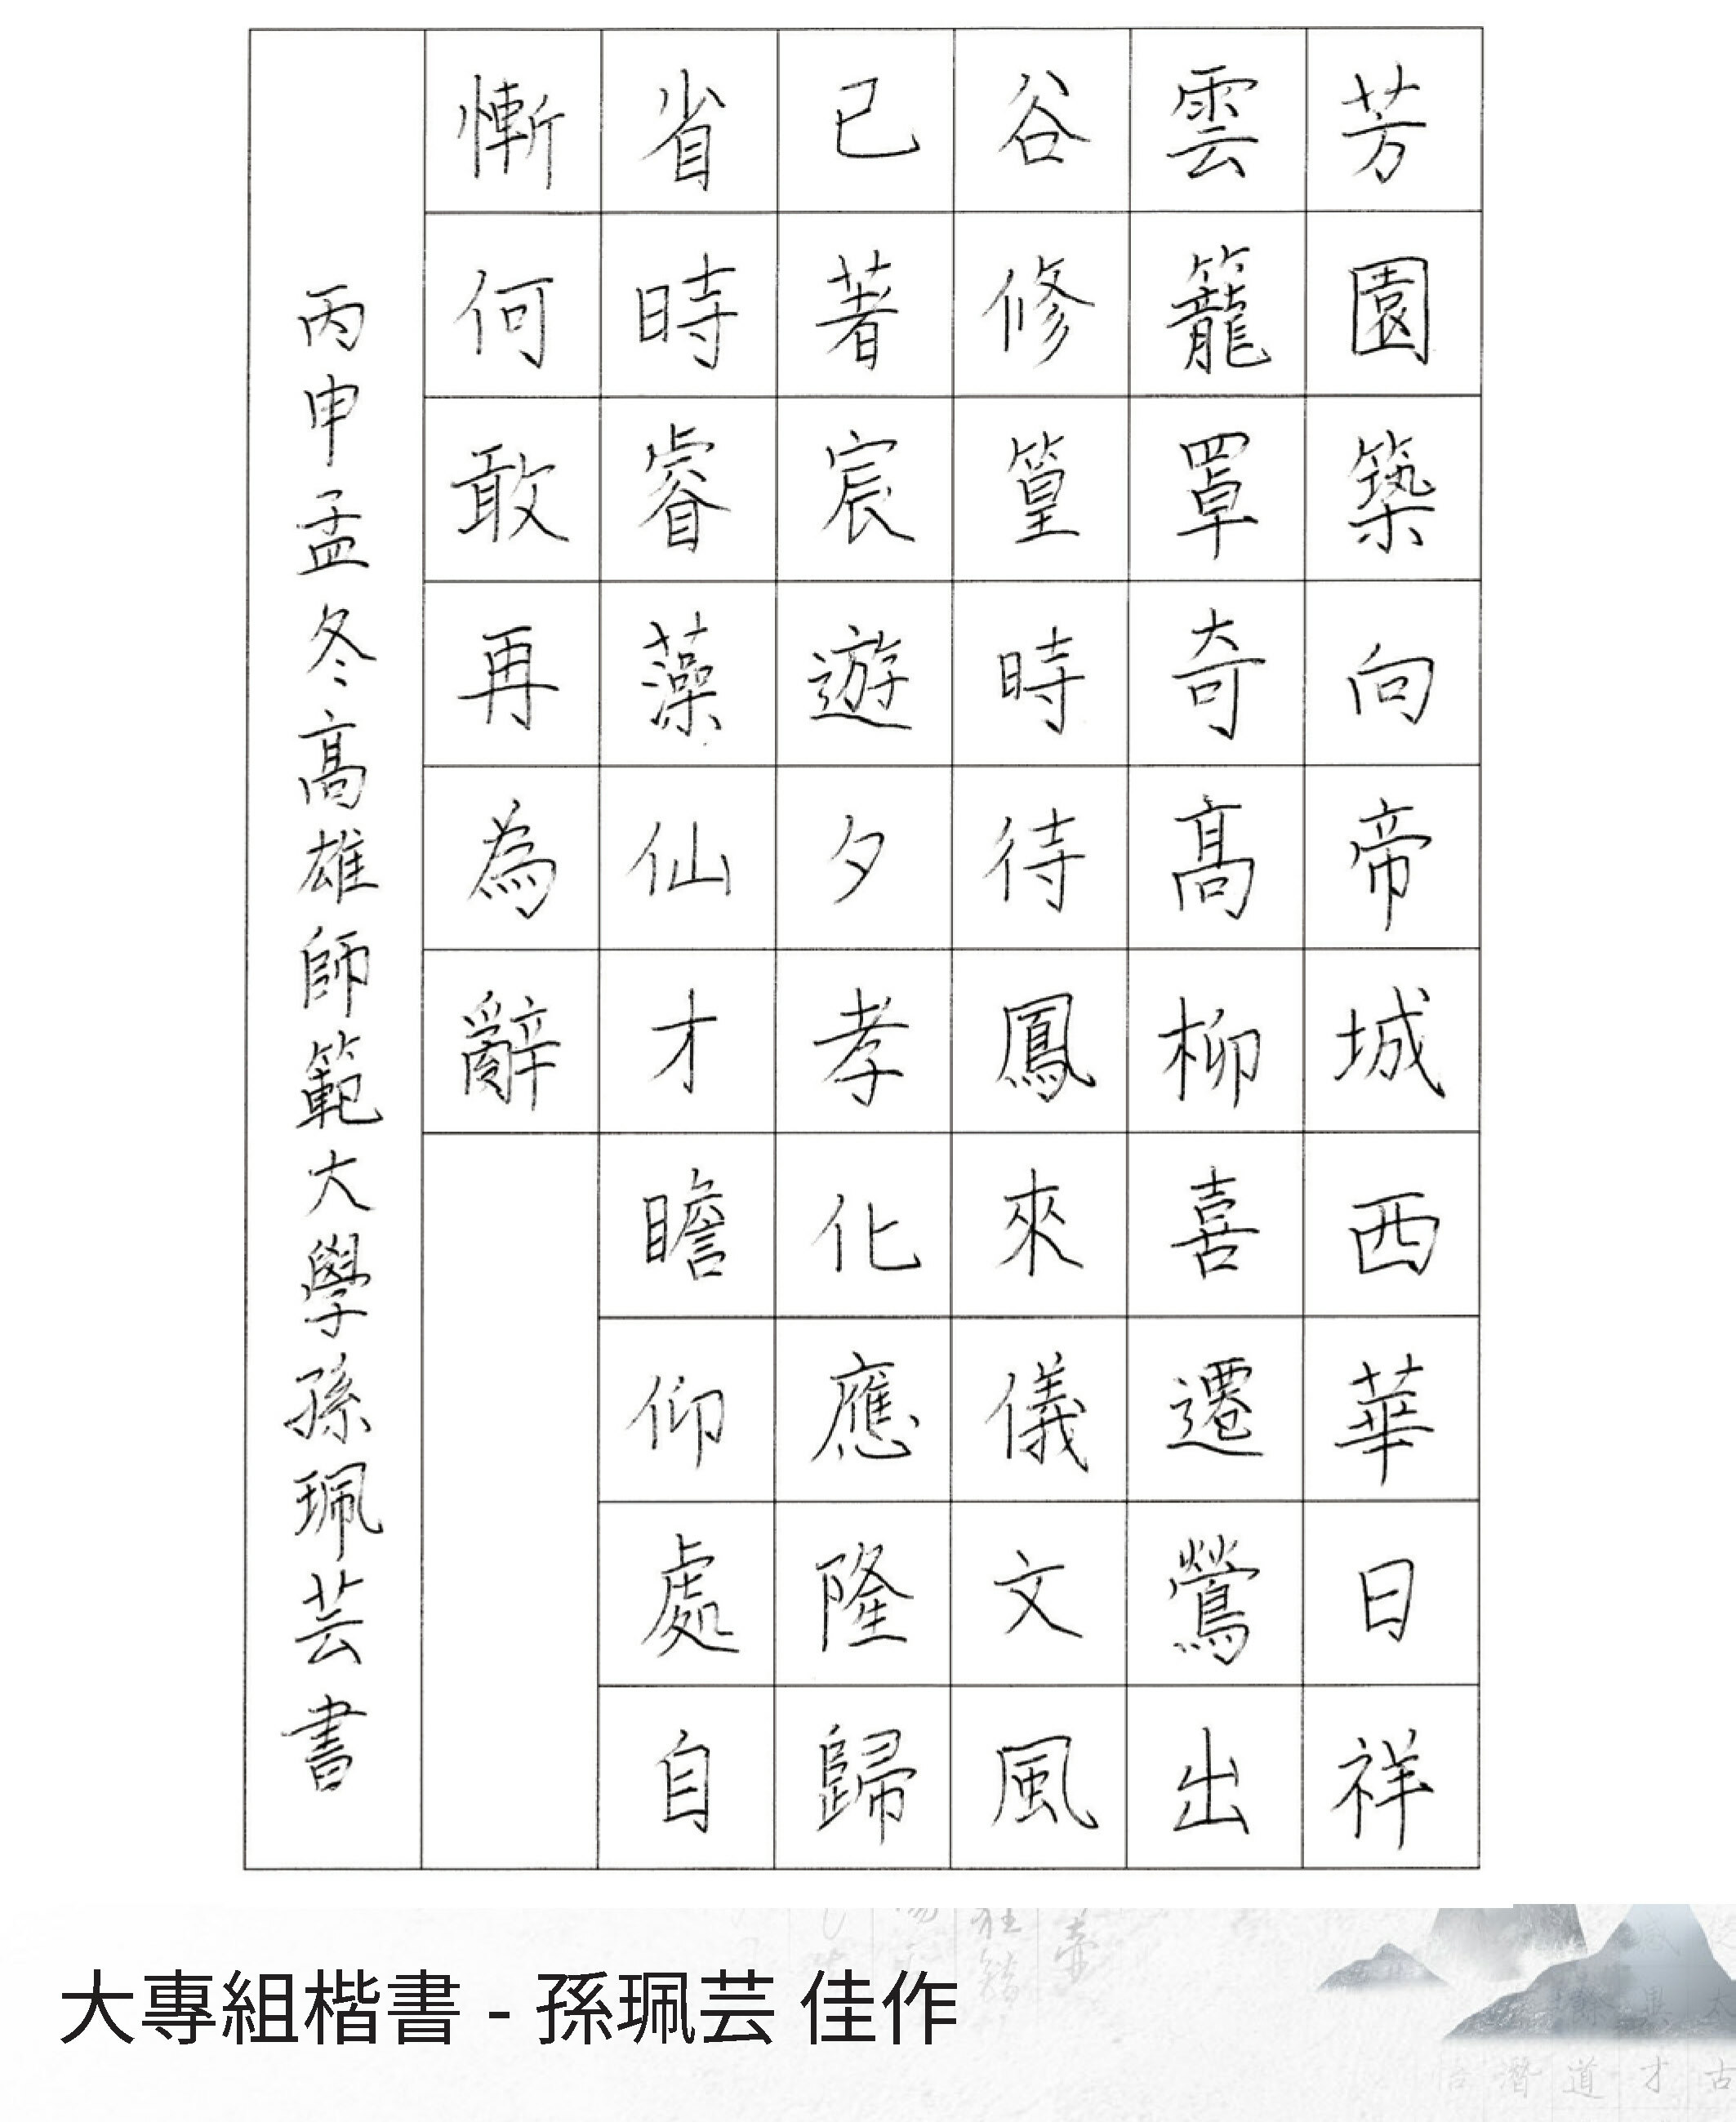 芳園築向帝城西華日祥
雲籠罩奇高柳喜遷鶯出
谷修篁時待鳳來儀文風
已著宸遊夕孝化應隆歸
省時睿藻仙才瞻仰處自
慚何敢再為辭
丙申孟冬高雄師範大學孫珮芸書
大專組楷書 - 孫珮芸 佳作